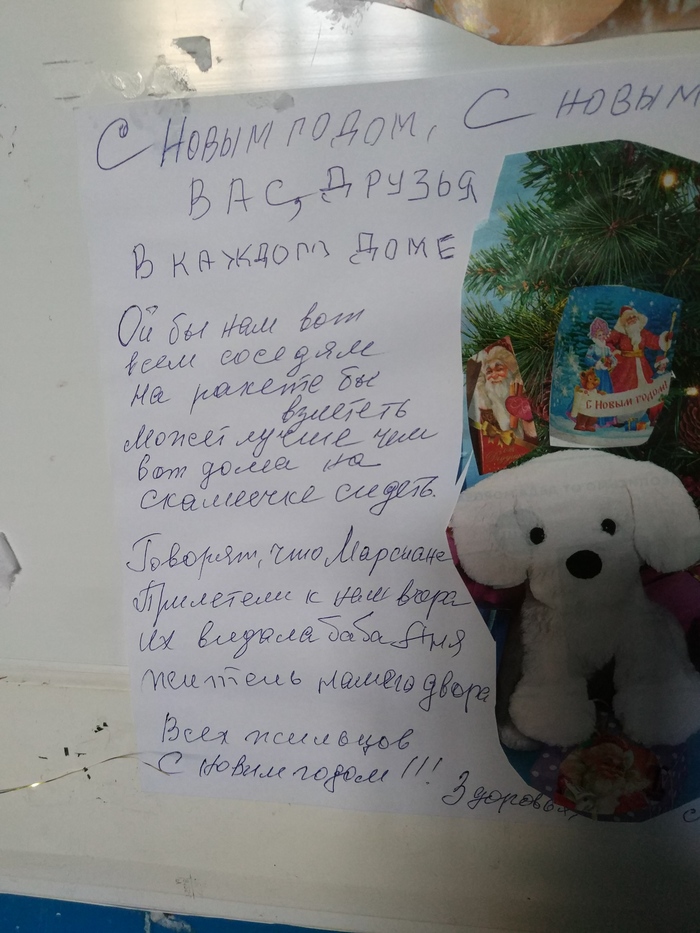 С НОВЫМ ГОДОМ, С НОВЫМ
ВАС, ДРУЗЬЯ
В КАЖДОМ ДОМЕ
Ой бы нам вот
всем соседям
на ракете бы
взлететь
Может лучше чем
вот дома на
скамеечке сидеть.
Говорят, что Марсиане
Прилетели к нам вчера
их видала баба Аня
житель нашего двора
Всех жильцов
С новым годом!!!
Здоровья,
С НОВЫМ ГОДОМ!